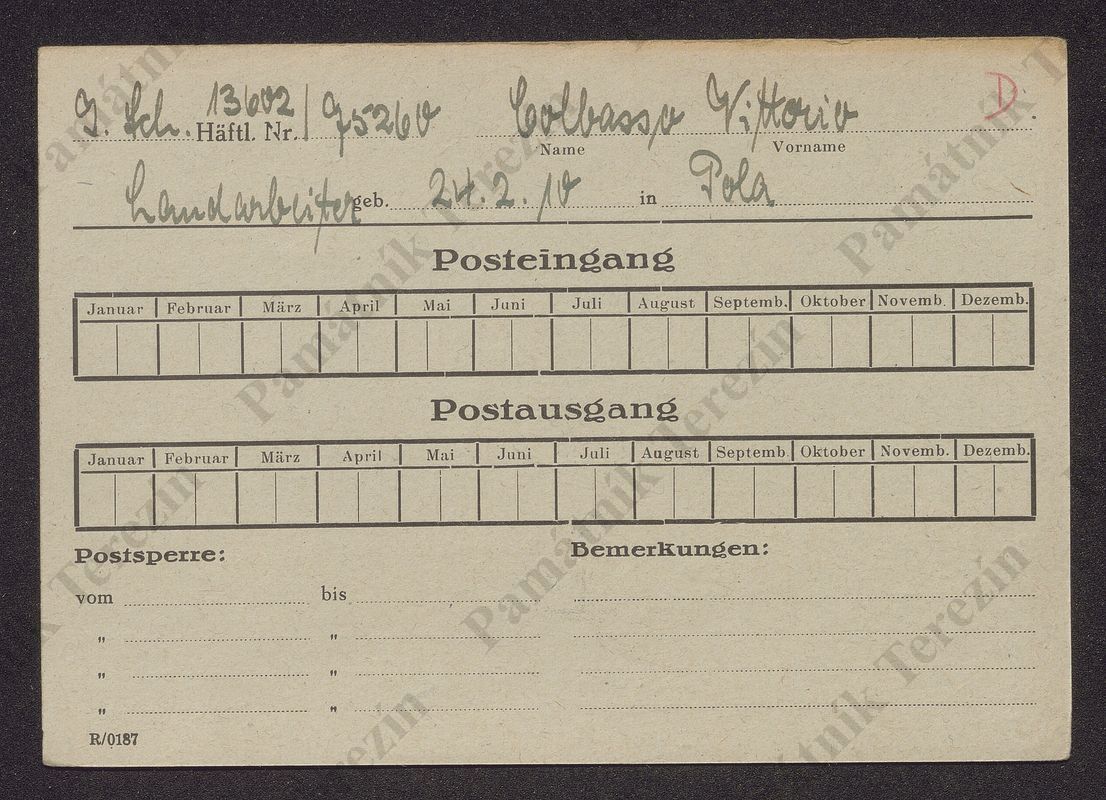 I. Sch. 13602 / 75260 Colbasso Vittorio D.
Häftl. Nr. Name Vorname
Landarbeiter geb. 24.2.10 in Pola
Posteingang
Januar Februar März April Mai Juni Juli August Septemb. Oktober Novemb. Dezemb.
Postausgang
Januar Februar März April Mai Juni Juli August Septemb. Oktober Novemb. Dezemb.
Postsperre: Bemerkungen:
vom bis
„ „
„ „
„ „
R/0187
Památník Terezín